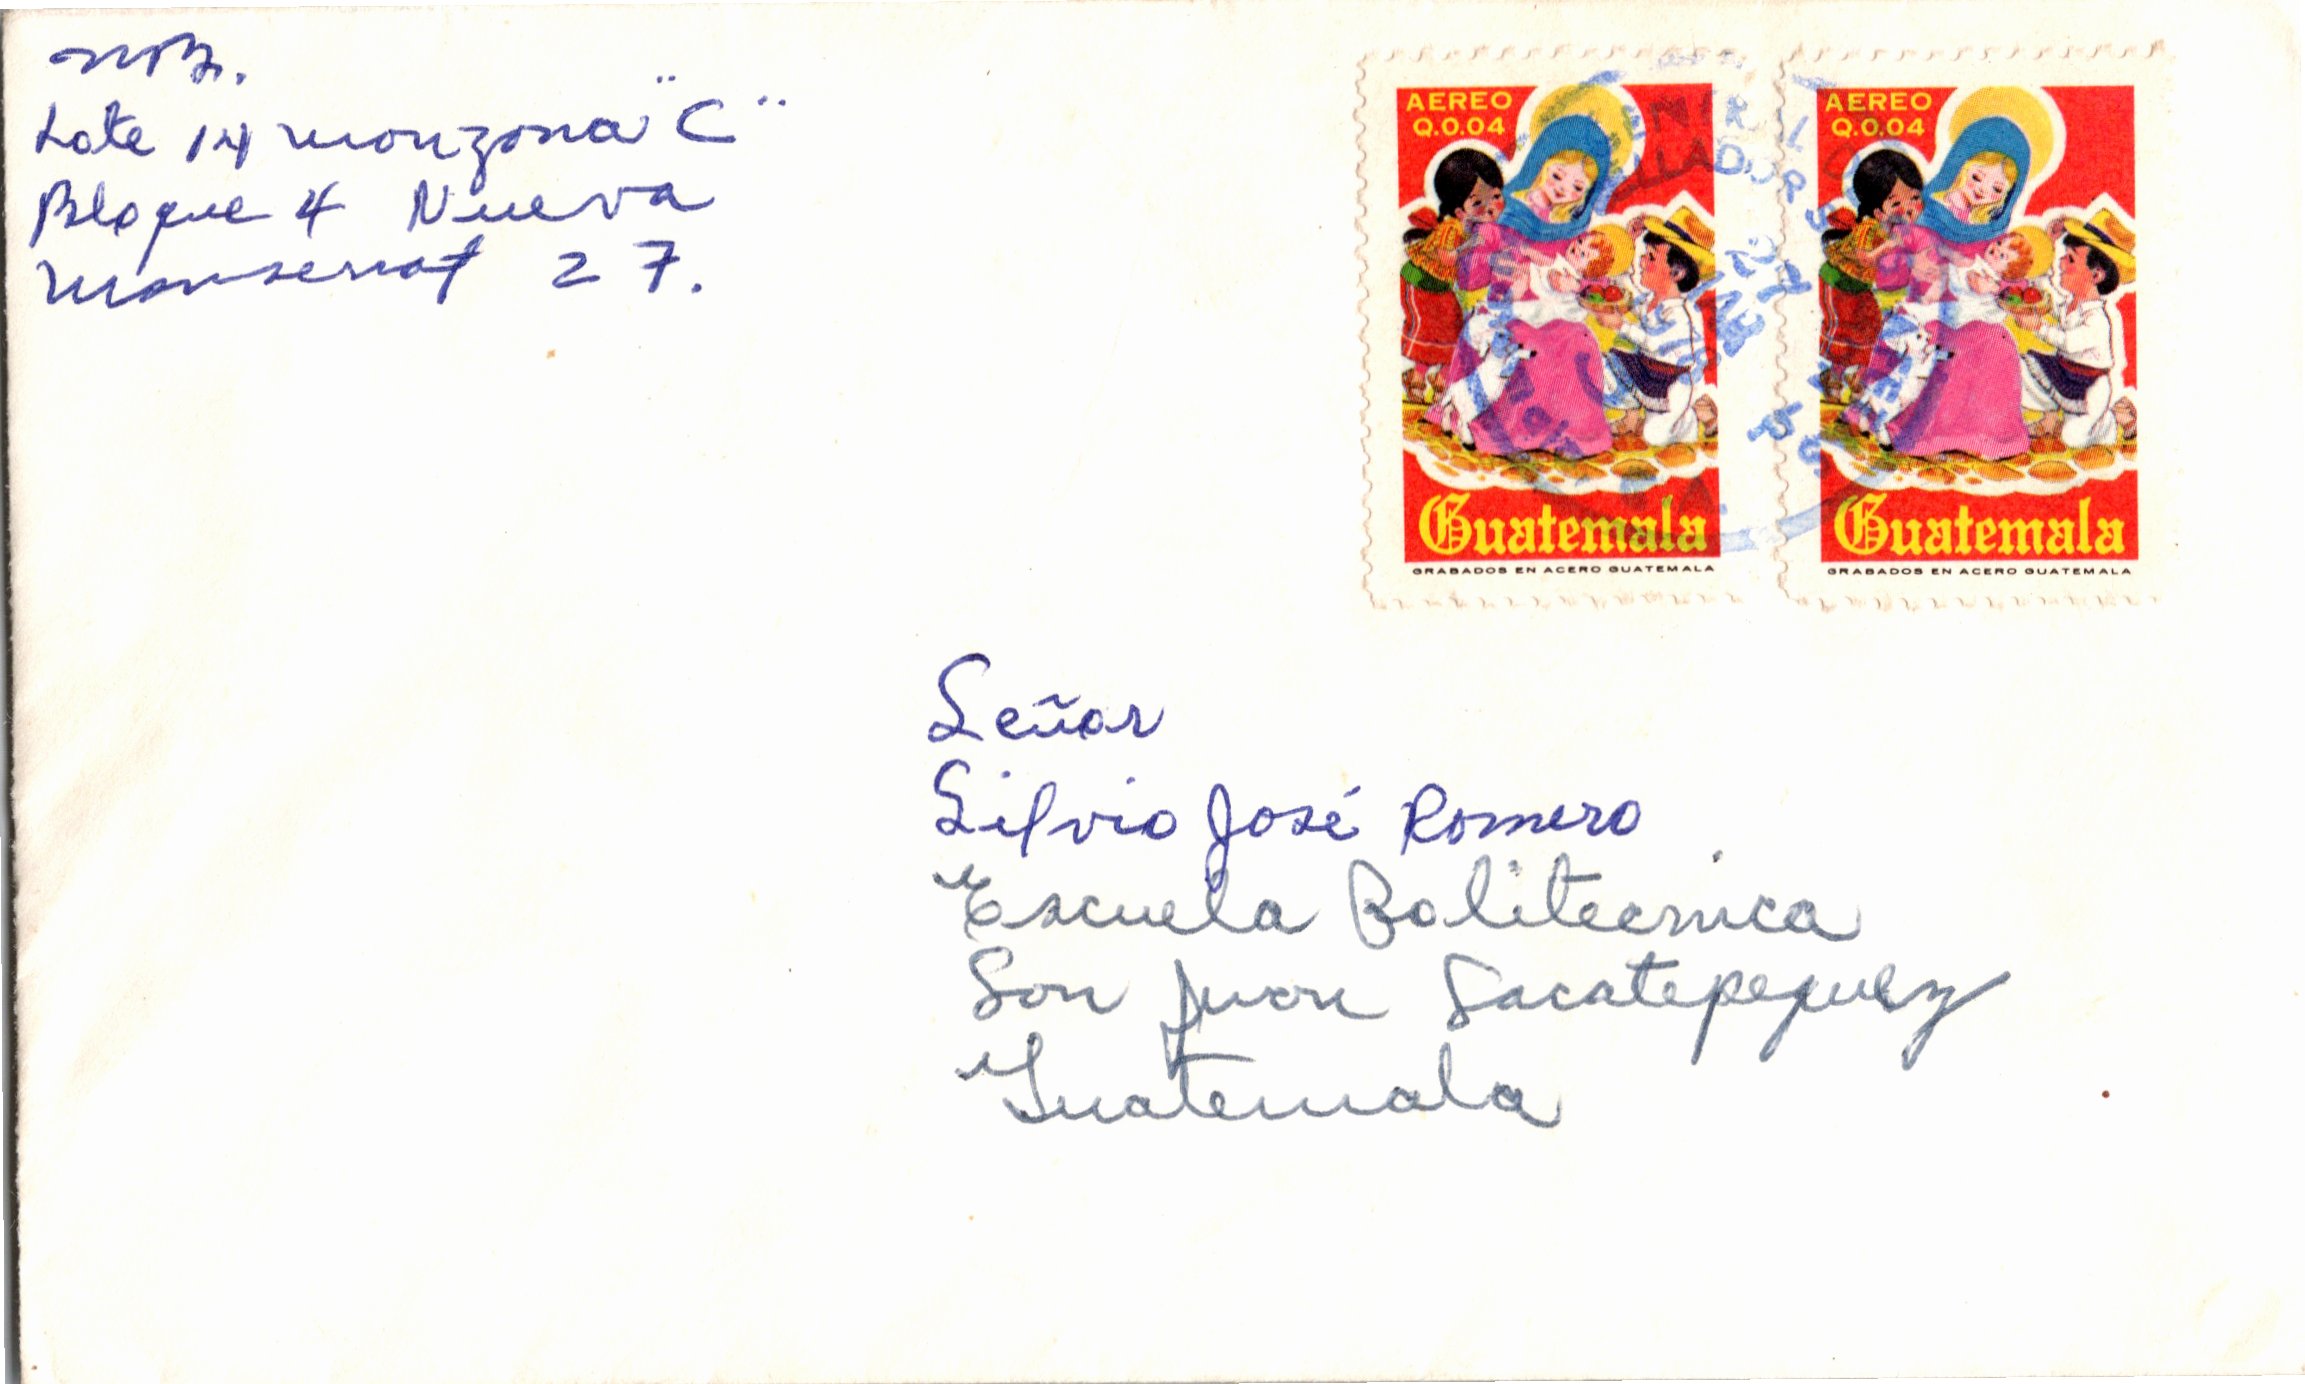 MB.
Lote 14 manzana "C"
Bloque 4 Nueva
Monserrat Z 7.
AEREO
Q.0.04
Guatemala
GRABADOS EN ACERO GUATEMALA
AEREO
Q.0.04
Guatemala
GRABADOS EN ACERO GUATEMALA
27
Señor
Silvio José Romero
Escuela Politecnica
San Juan Sacatepequez
Guatemala